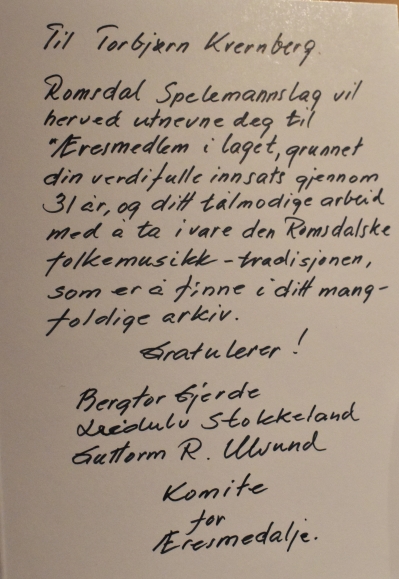 Til Torbjørn Kvernberg.
Romsdal Spelemannslag vil
herved utnevne deg til
"Æresmedlem i laget, grunnet
din verdifulle innsats gjennom
31 år, og ditt tålmodige arbeid
med å ta i vare den Romsdalske
folkemusikk-tradisjonen,
som er å finne i ditt mang-
foldige arkiv.
Gratulerer!
Bergtor Gjerde
Stokkeland
Guttorm R. Ulvund
Komite
for
Æresmedalje.